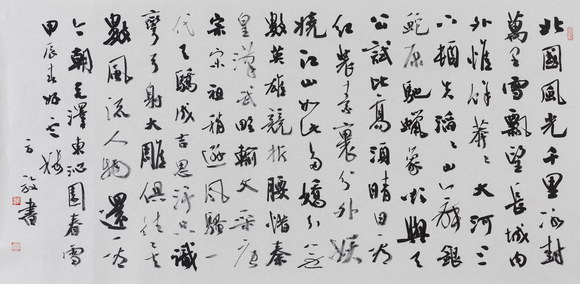 北國風光千里冰封
萬里雪飄望長城內
外惟餘莽〻大河上
下頓失滔〻山舞銀
蛇原馳蠟象欲與天
公試比高須晴日看
紅裝素裹分外妖
嬈江山如此多嬌引無
數英雄競折腰惜秦
皇漢武略輸文采唐
宗宋祖稍遜風騷一
代天驕成吉思汗只識
彎弓射大雕俱往矣
數風流人物還看
今朝毛澤東沁園春雪
甲辰
書